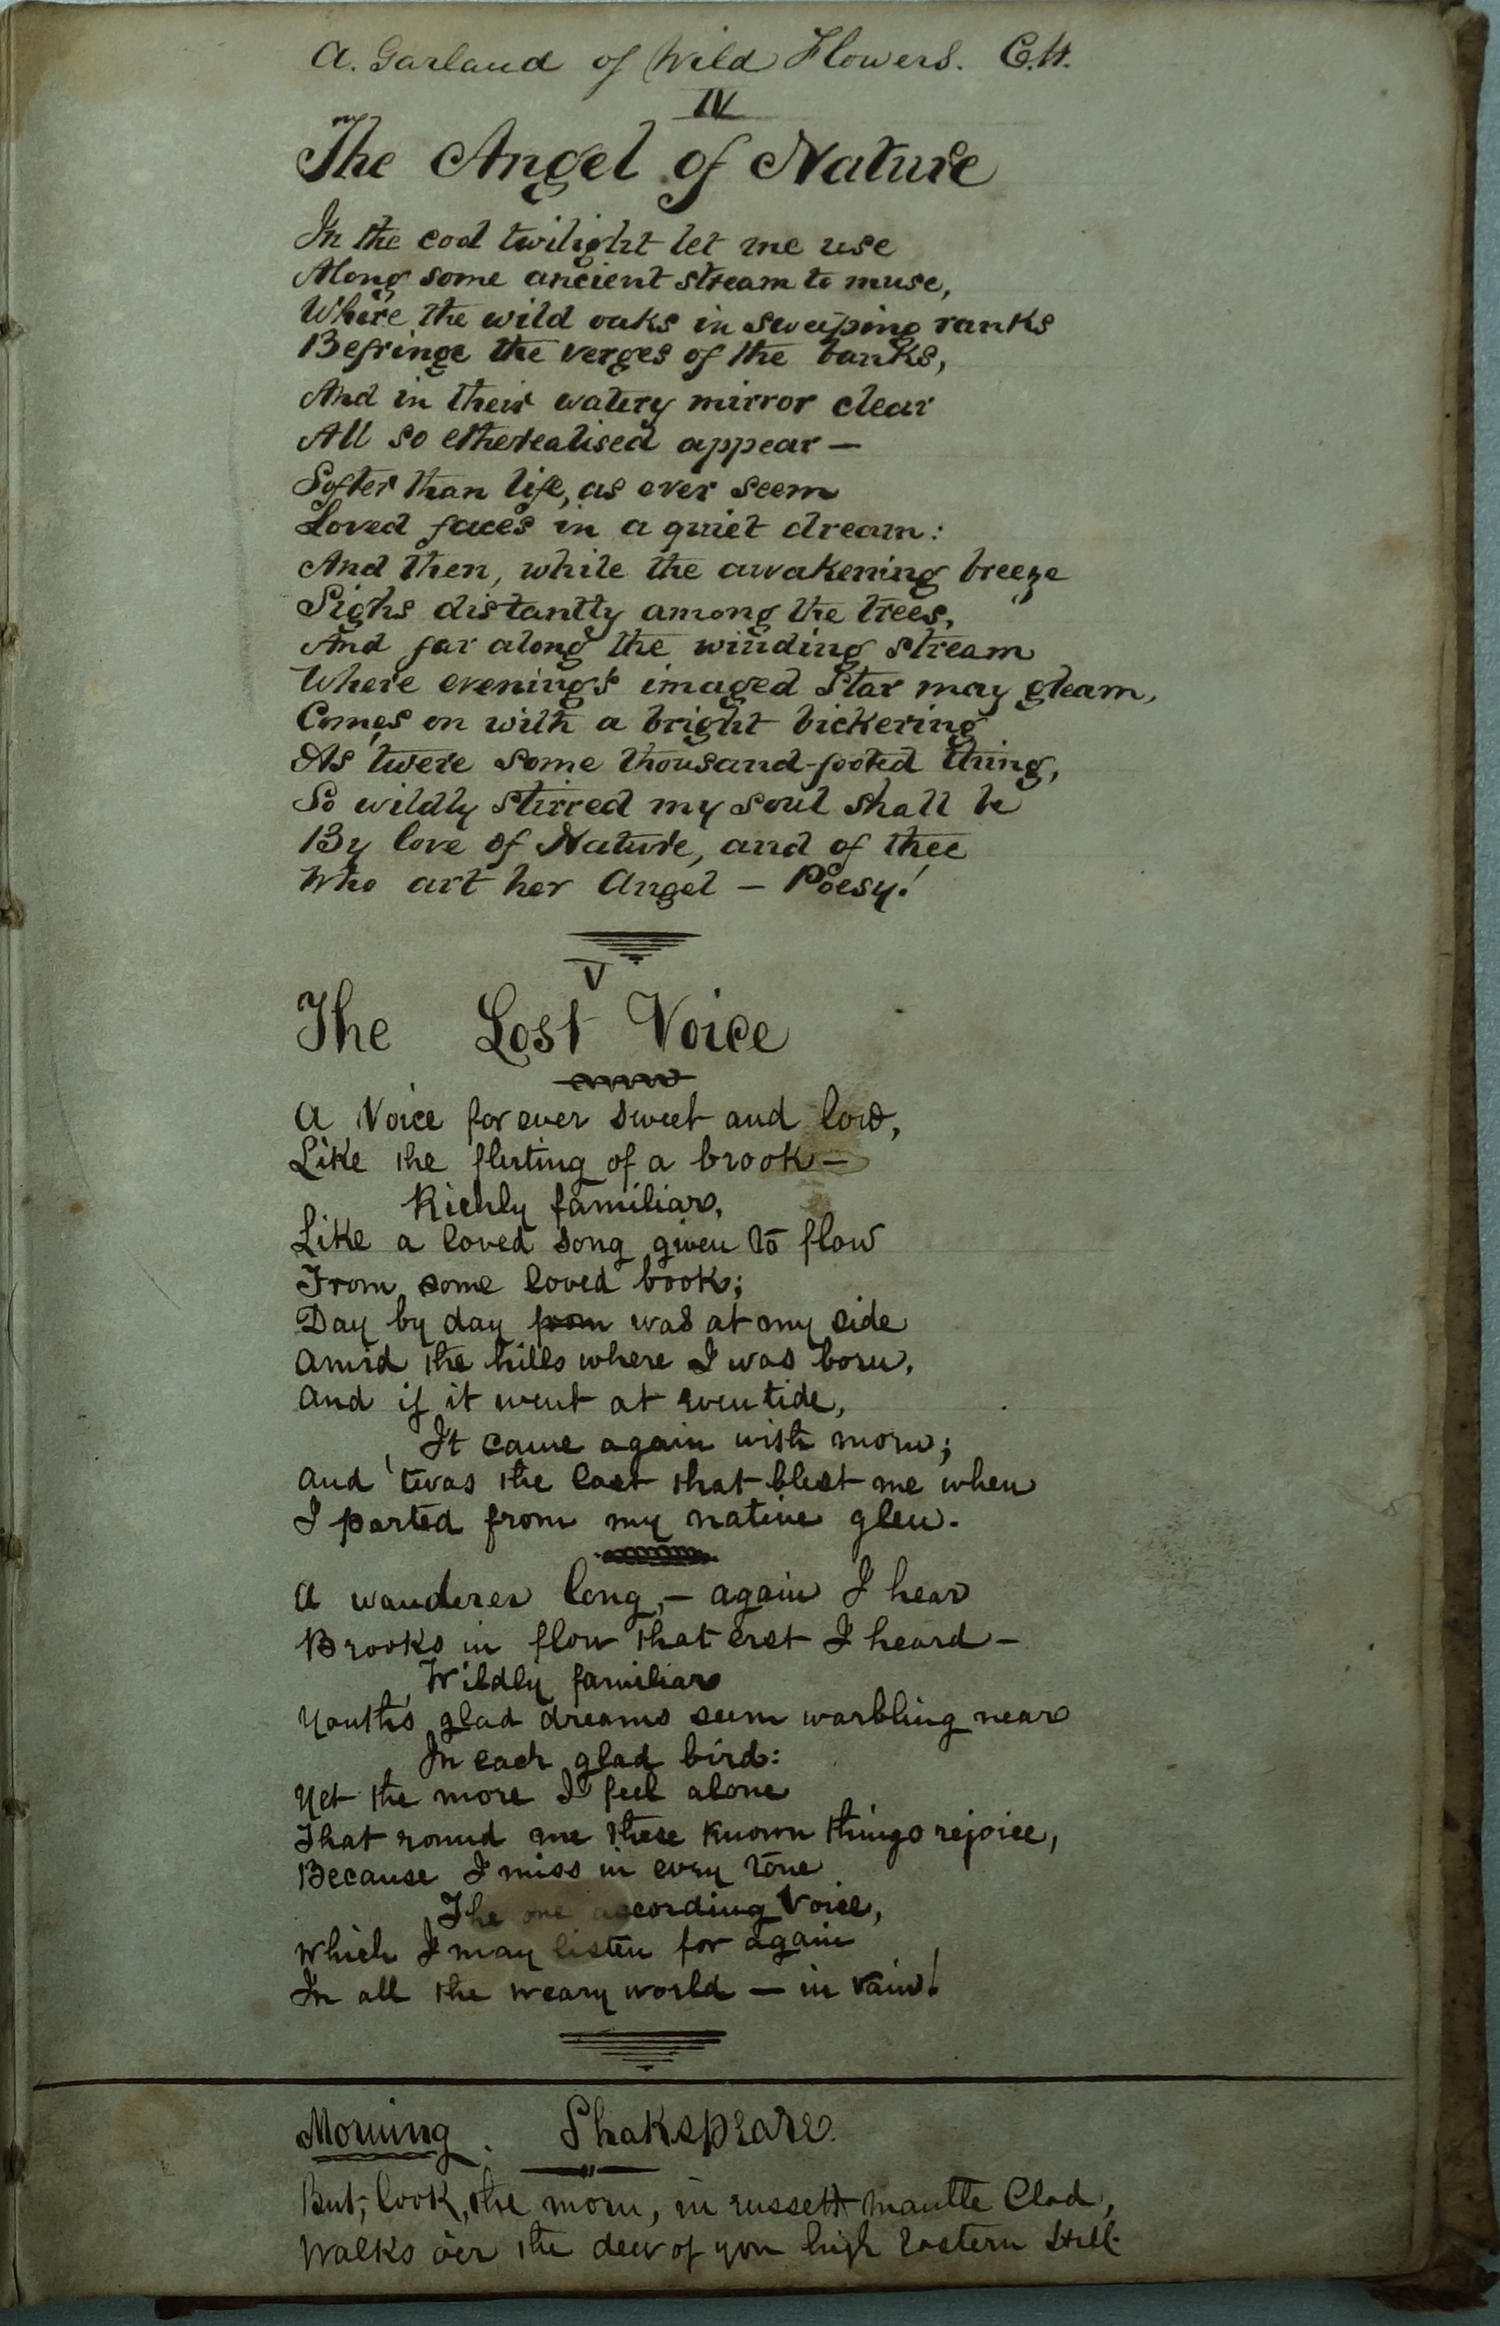 A. Garland of Wild Flowers. C.H.
IV
The Angel of Nature
In the cool twilight let me use
Along some ancient stream to muse,
Where the wild oaks in sweeping ranks
Befringe the verges of the banks,
And in their watery mirror clear
All so etherealised appear —
Softer than life, as ever seem
Loved faces in a quiet dream:
And then, while the awakening breeze
Sighs distantly among the trees,
And far along the winding stream
Where evening's imaged Star may gleam,
Comes on with a bright bickering
As 'twere some thousand-footed thing,
So wildly stirred my soul shall be
By love of Nature, and of thee
Who art her Angel — Poesy!
V
The Lost Voice
A Voice forever sweet and low,
Like the flirting of a brook —
Richly familiar,
Like a loved song given to flow
From some loved book;
Day by day from was at my side
Amid the hills where I was born,
And if it went at eventide,
It came again with morn;
And 'twas the last that blest me when
I parted from my native glen.
A wanderer long, — again I hear
Brooks in flow that erst I heard —
Wildly familiar
Youth's glad dreams seem warbling near
In each glad bird:
Yet the more I feel alone
That round me these known things rejoice,
Because I miss in evry tone
The one according Voice,
Which I may listen for again
In all the weary world — in vain!
Morning. Shakspeare.
But, look, the morn, in russett mantle Clad,
Walks o'er the dew of yon high Eastern Hill.